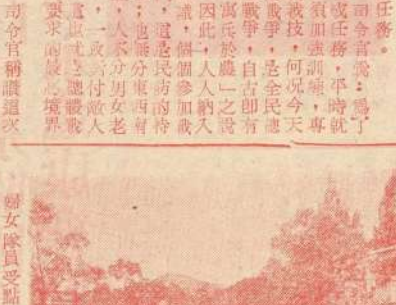 任務。
司令官說：爲了
成任務，平時就
須加強訓練，專
戰技，何況今天
戰爭，是全民總
戰爭，自古卽有
寓兵於農」之說
因此，人人納入
織，個個參加戰
，這是民防的特
；也無分東西南
，人不分男女老
，一致對付敵人
這也就是總體戰
要求的最高境界
司令官稱讚這次
婦女隊員受點